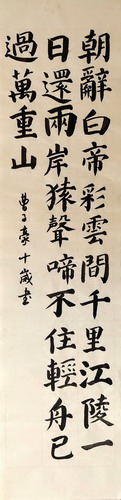 朝辭白帝彩雲間千里江陵一
日還兩岸猿聲啼不住輕舟已
過萬重山
曹子豪十歲書